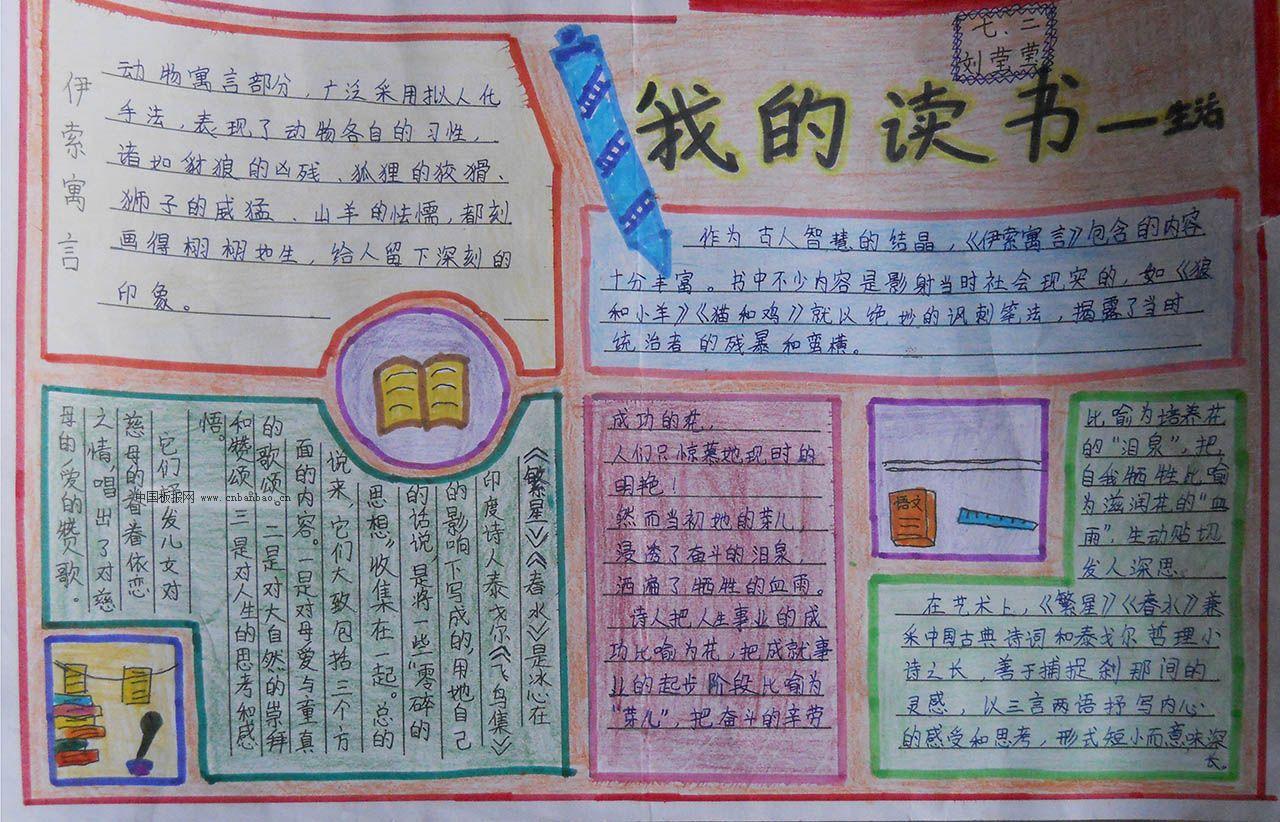 七、二
刘莹莹
我的读书—生活
伊索寓言
动物寓言部分，广泛采用拟人化
手法，表现了动物各自的习性，
诸如豺狼的凶残、狐狸的狡猾、
狮子的威猛、山羊的怯懦，都刻
画得栩栩地生，给人留下深刻的
印象。
作为古人智慧的结晶，《伊索寓言》包含的内容
十分丰富。书中不少内容是影射当时社会现实的，如《狼
和小羊》《猫和鸡》就以绝妙的讽刺笔法，揭露了当时
统治者的残暴和蛮横。
《繁星》《春水》是冰心在
印度诗人泰戈尔《飞鸟集》
的影响下写成的，用她自己
的话说，是将一些“零碎的
思想”收集在一起。总的
说来，它们大致包括三个方
面的内容。一是对母爱与童真
的歌颂。二是对大自然的崇拜
和赞颂。三是对人生的思考和感
悟。
它们抒发儿女对
慈母的眷眷依恋
之情，唱出了对慈
母的爱的赞歌。
中国板报网 www.cnbanbao.cn
成功的花，
人们只惊慕她现时的
明艳！
然而当初她的芽儿，
浸透了奋斗的泪泉，
洒遍了牺牲的血雨。
诗人把人生事业的成
功比喻为花，把成就事
业的起步阶段比喻为
“芽儿”，把奋斗的辛劳
语文
比喻为培养花
的“泪泉”，把
自我牺牲比喻
为滋润花的“血
雨”，生动贴切，
发人深思。
在艺术上，《繁星》《春水》兼
采中国古典诗词和泰戈尔哲理小
诗之长，善于捕捉刹那间的
灵感，以三言两语抒写内心
的感受和思考，形式短小而意味深
长。